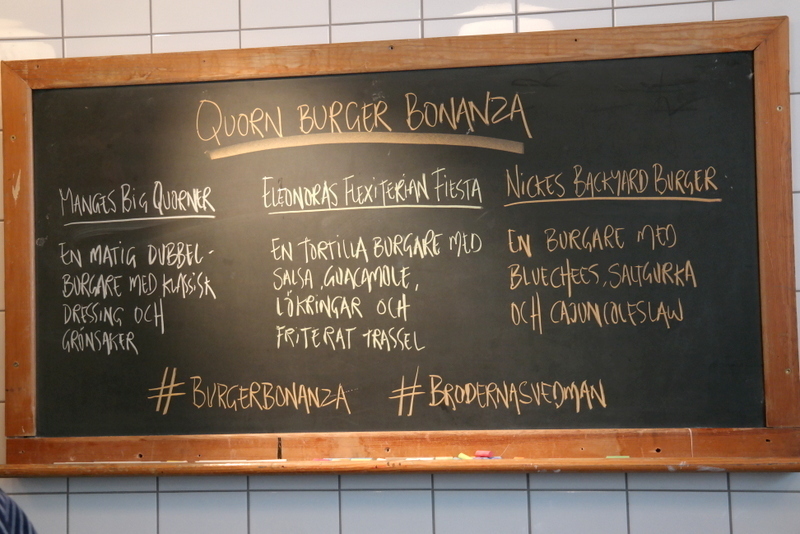 QUORN BURGER BONANZA
MANGES BIG QUORNER
EN MATIG DUBBEL-
BURGARE MED KLASSISK
DRESSING OCH
GRÖNSAKER
ELEONORAS FLEXITERIAN FIESTA
EN TORTILLA BURGARE MED
SALSA, GUACAMOLE,
LÖKRINGAR OCH
FRITERAT TRASSEL
NICKES BACKYARD BURGER
EN BURGARE MED
BLUECHEES, SALTGURKA
OCH CAJUNCOLESLAW
#BURGERBONANZA #BRODERNASVEDMAN